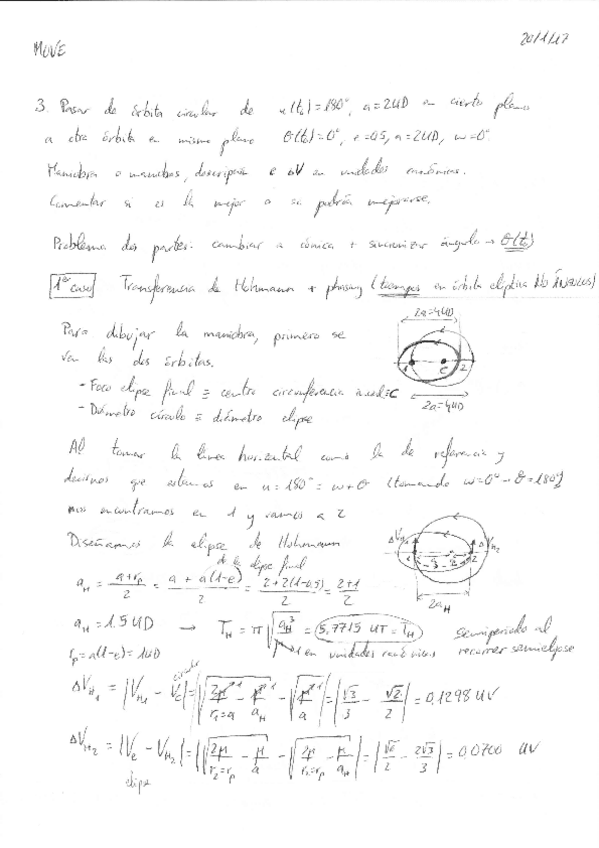 MUVE
20/1/17
3. Pasar de órbita circular de u(t₀)=180°, a=2UD en cierto plano
a otra órbita en mismo plano θ(t₀)=0°, e=0.5, a=2UD, w=0°
Maniobra o maniobras, descripción e ΔV en unidades canónicas.
Comentar si es la mejor o si podría mejorarse.
Problema dos partes: cambiar a cónica + sincronizar ángulo → θ(t₀)
1er caso Transferencia de Hohmann + phasing (tiempos en órbita elíptica NO ÁNGULOS)
Para dibujar la maniobra, primero se
ven las dos órbitas.
- Foco elipse final ≡ centro circunferencia inicial ≡ C
- Diámetro círculo ≡ diámetro elipse
2a=4UD
1 C 2
2a=4UD
Al tomar la línea horizontal como la de referencia y
decirnos que estamos en u=180°=w+θ (tomando w=0° → θ=180°)
nos encontramos en 1 y vamos a 2
Diseñamos la elipse de Hohmann
de la elipse final
a_H = (a+r_p)/2 = (a+a(1-e))/2 = (2+2(1-0.5))/2 = (2+1)/2
ΔV_H1 ΔV_H2
2a_H
a_H = 1.5 UD → T_H = π√(a_H³/μ) = 5,7715 UT = T_H semiperiodo al
r_p = a(1-e) = 1UD 1 en unidades canónicas recorrer semielipse
circular
ΔV_H1 = |V_H1 - V_c| = |√(2μ/r₁=a - μ/a_H) - √(μ/a)| = |√3/3 - √2/2| = 0,1298 UV
ΔV_H2 = |V_e - V_H2| = |√(2μ/r₂=r_p - μ/a) - √(2μ/r₂=r_p - μ/a_H)| = |√6/2 - 2√3/3| = 0,0700 UV
elipse